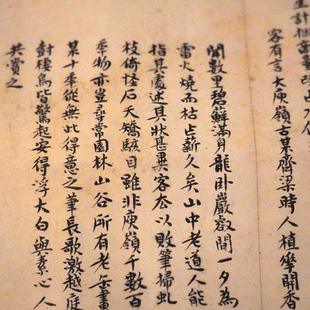 客有言大庾嶺古某齊梁時人植華開香
聞數里碧蘚滿身龍卧巖間一夕為
雷火燒而枯占薪久矣山中老道人能
指其處述其狀甚異客以敗筆掃虬
枝倚怪石夭矯駭目雖非庾嶺千數百
季物亦豈尋常園林山谷所有老缶畫
某十季從無此得意之筆長歌激越庭
樹棲鳥皆驚起安得浮大白與素心人
共賞之